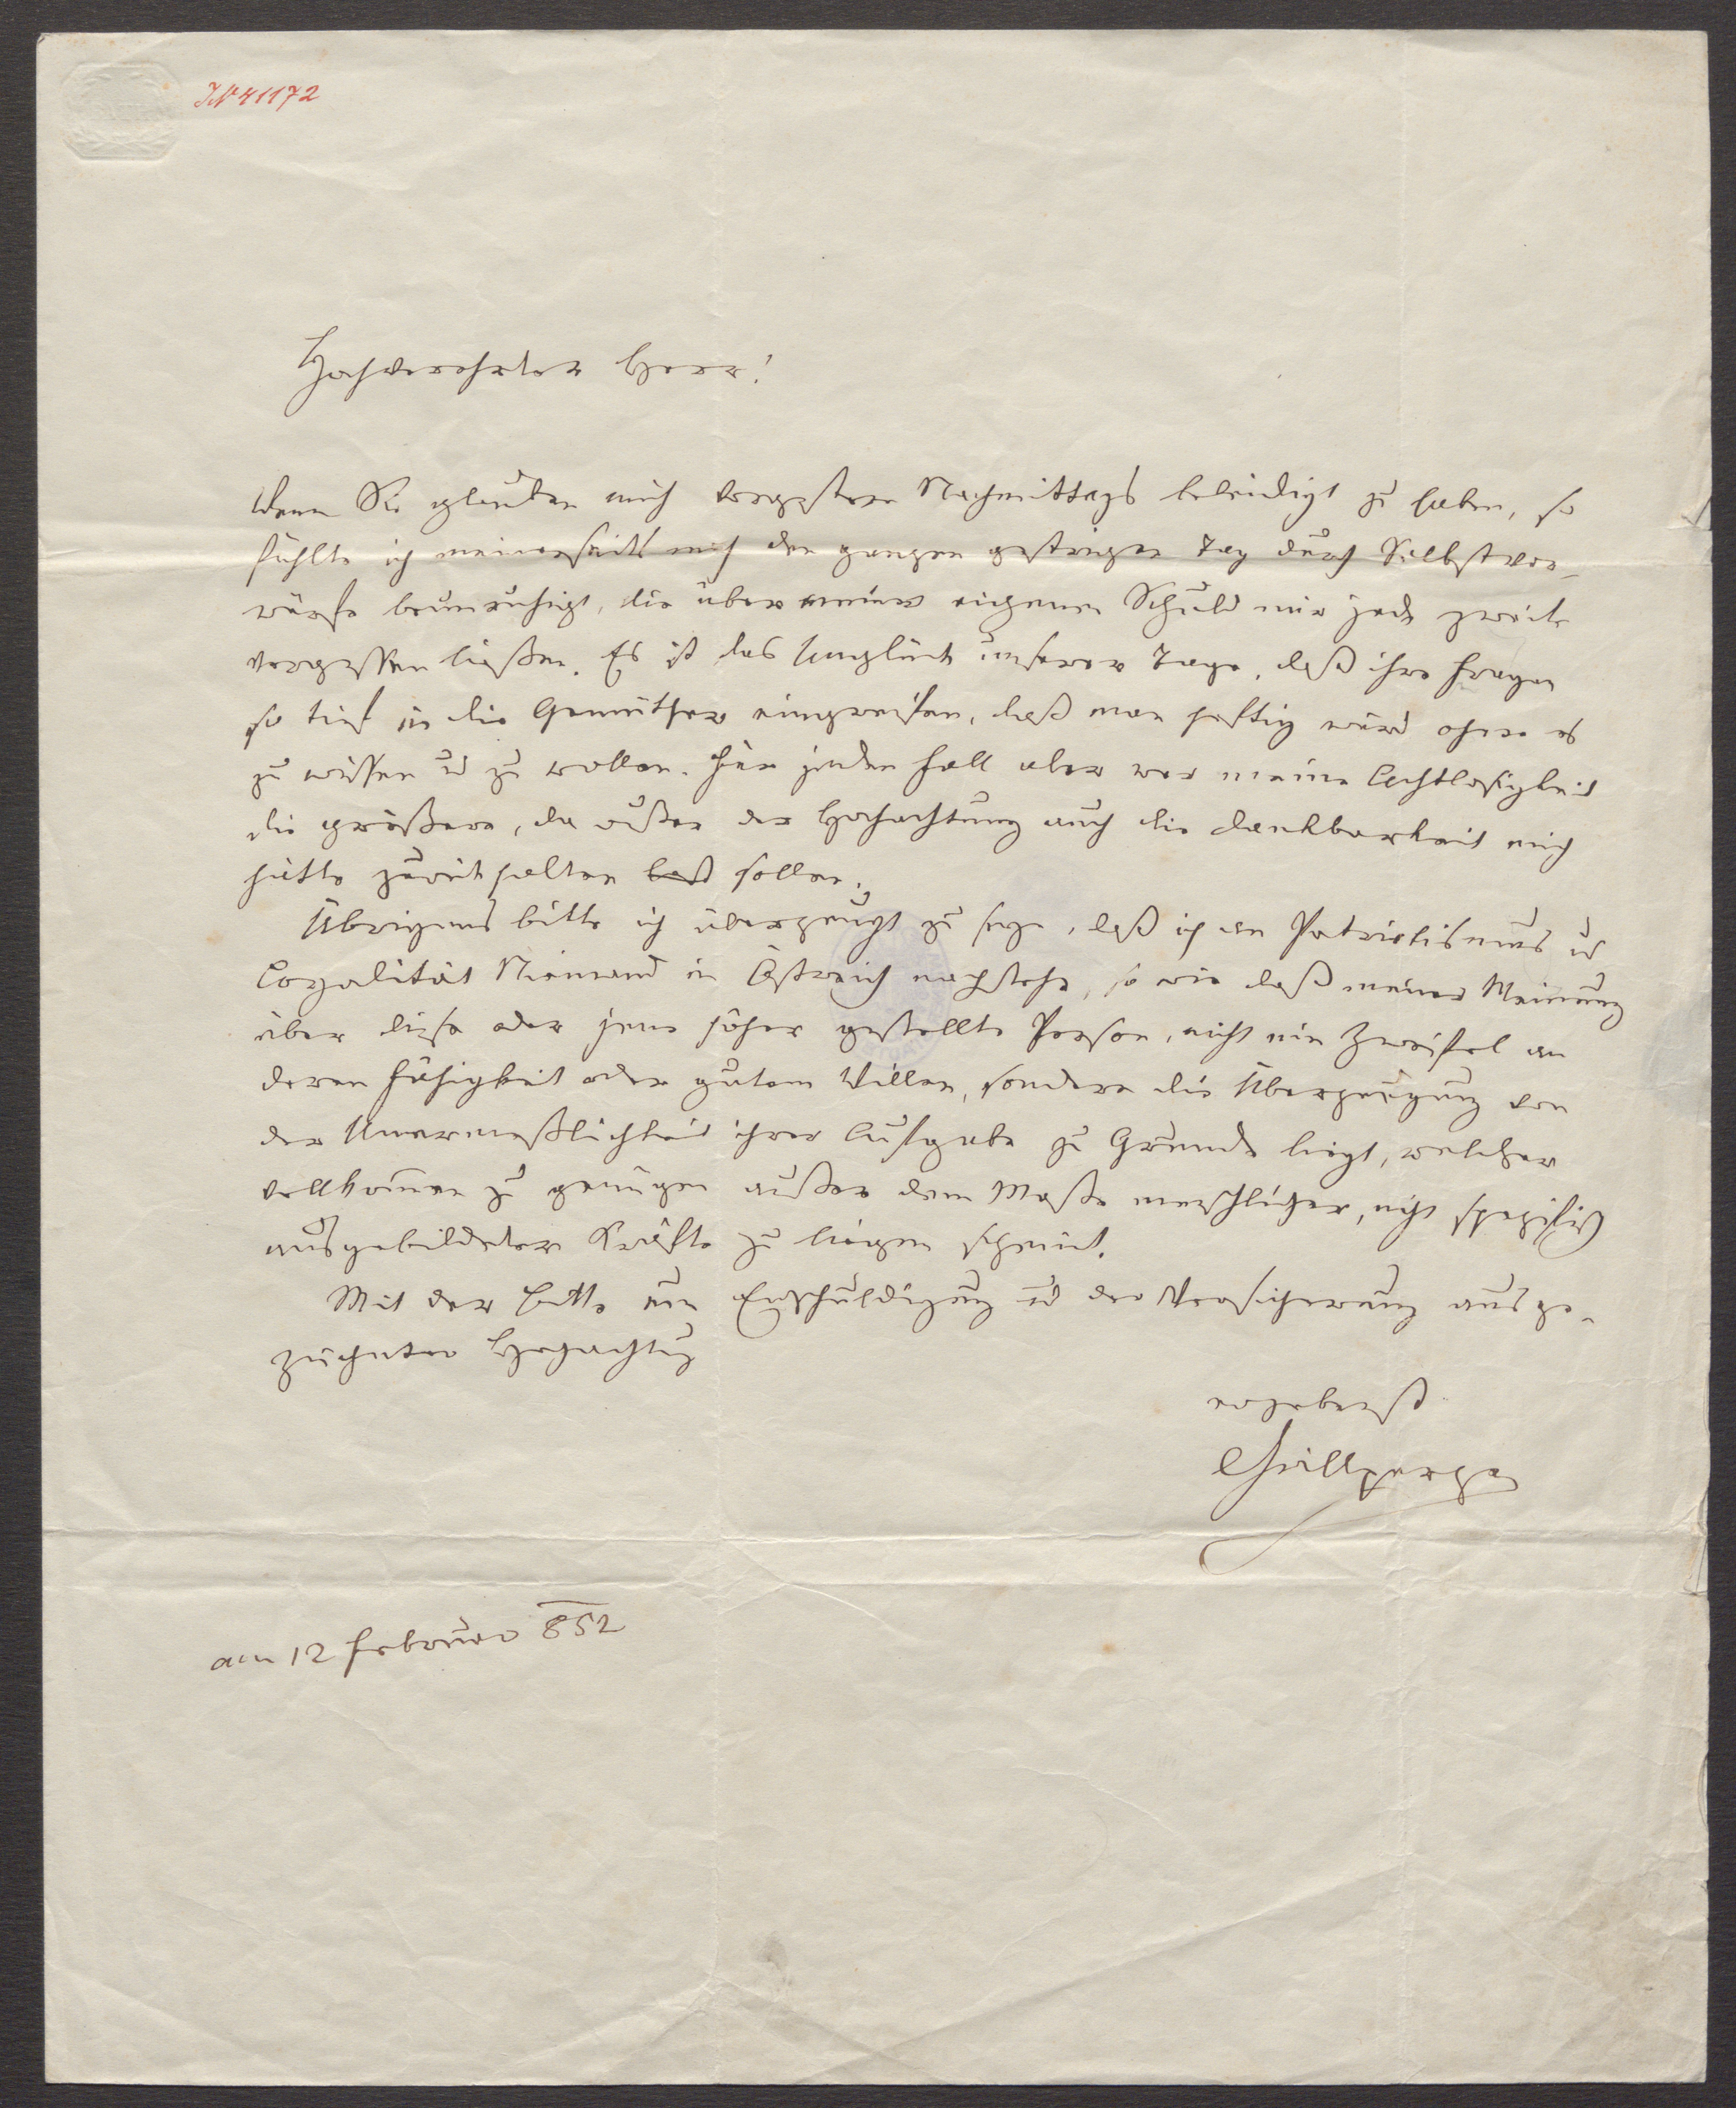 IN 41172
Hochverehrter Herr!
Wenn Sie glauben mich vorgestern Nachmittags beleidigt zu haben, so
fühlte ich meinerseits mich den ganzen gestrigen Tag durch Selbstvor-
würfe beunruhigt, die über meiner eigenen Schuld mir jede zweite
vergessen ließen. Es ist das Unglück unserer Tage, daß ihre Fragen
so tief in die Gemüther eingreifen, daß man heftig wird ohne es
zu wissen ud zu wollen. Für jeden Fall aber war meine Achtlosigkeit
die größere, da außer der Hochachtung auch die Dankbarkeit mich
hätte zurückhalten sollen.
Übrigens bitte ich überzeugt zu seyn, daß ich an Patriotismus ud
Loyalität Niemand in Östreich nachstehe, so wie daß meiner Meinung
über diese oder jene höher gestellte Person, nicht ein Zweifel an
deren Fähigkeit oder gutem Willen, sondern die Überzeugung von
der Unermeßlichkeit ihrer Aufgabe zu Grunde liegt, welcher
vollkommen zu genügen außer dem Maße menschlicher, nicht spezifisch
ausgebildeter Kräfte zu liegen scheint.
Mit der Bitte um Entschuldigung ud der Versicherung ausge-
zeichneter Hochachtung
ergebenst
Grillparzer
am 12 Februar 852